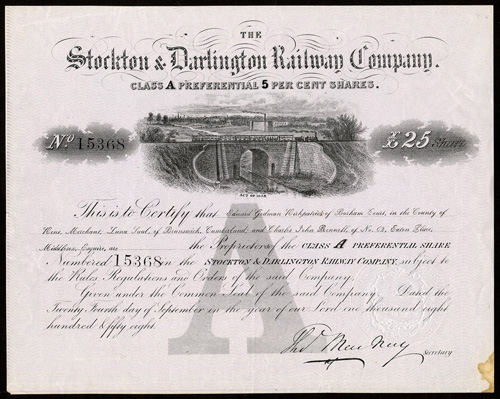 THE
Stockton & Darlington Railway Company.
CLASS A PREFERENTIAL 5 PER CENT SHARES.
No 15368
£25 Share
ACT OF 1858
This is to Certify that Edward Kirkpatrick of in the County of
Merchant, of Brunswick, Cumberland, and Charles John Bunnell, of No. Eaton Place,
Middlesex, Esquire, are the Proprietors of the CLASS A PREFERENTIAL SHARE
Numbered 15368 in the STOCKTON & DARLINGTON RAILWAY COMPANY, subject to
the Rules, Regulations and Orders of the said Company.
Given under the Common Seal of the said Company. Dated the
Twenty Fourth day of September in the year of our Lord one thousand eight
hundred & fifty eight.
A
Thos Mac Nay
Secretary